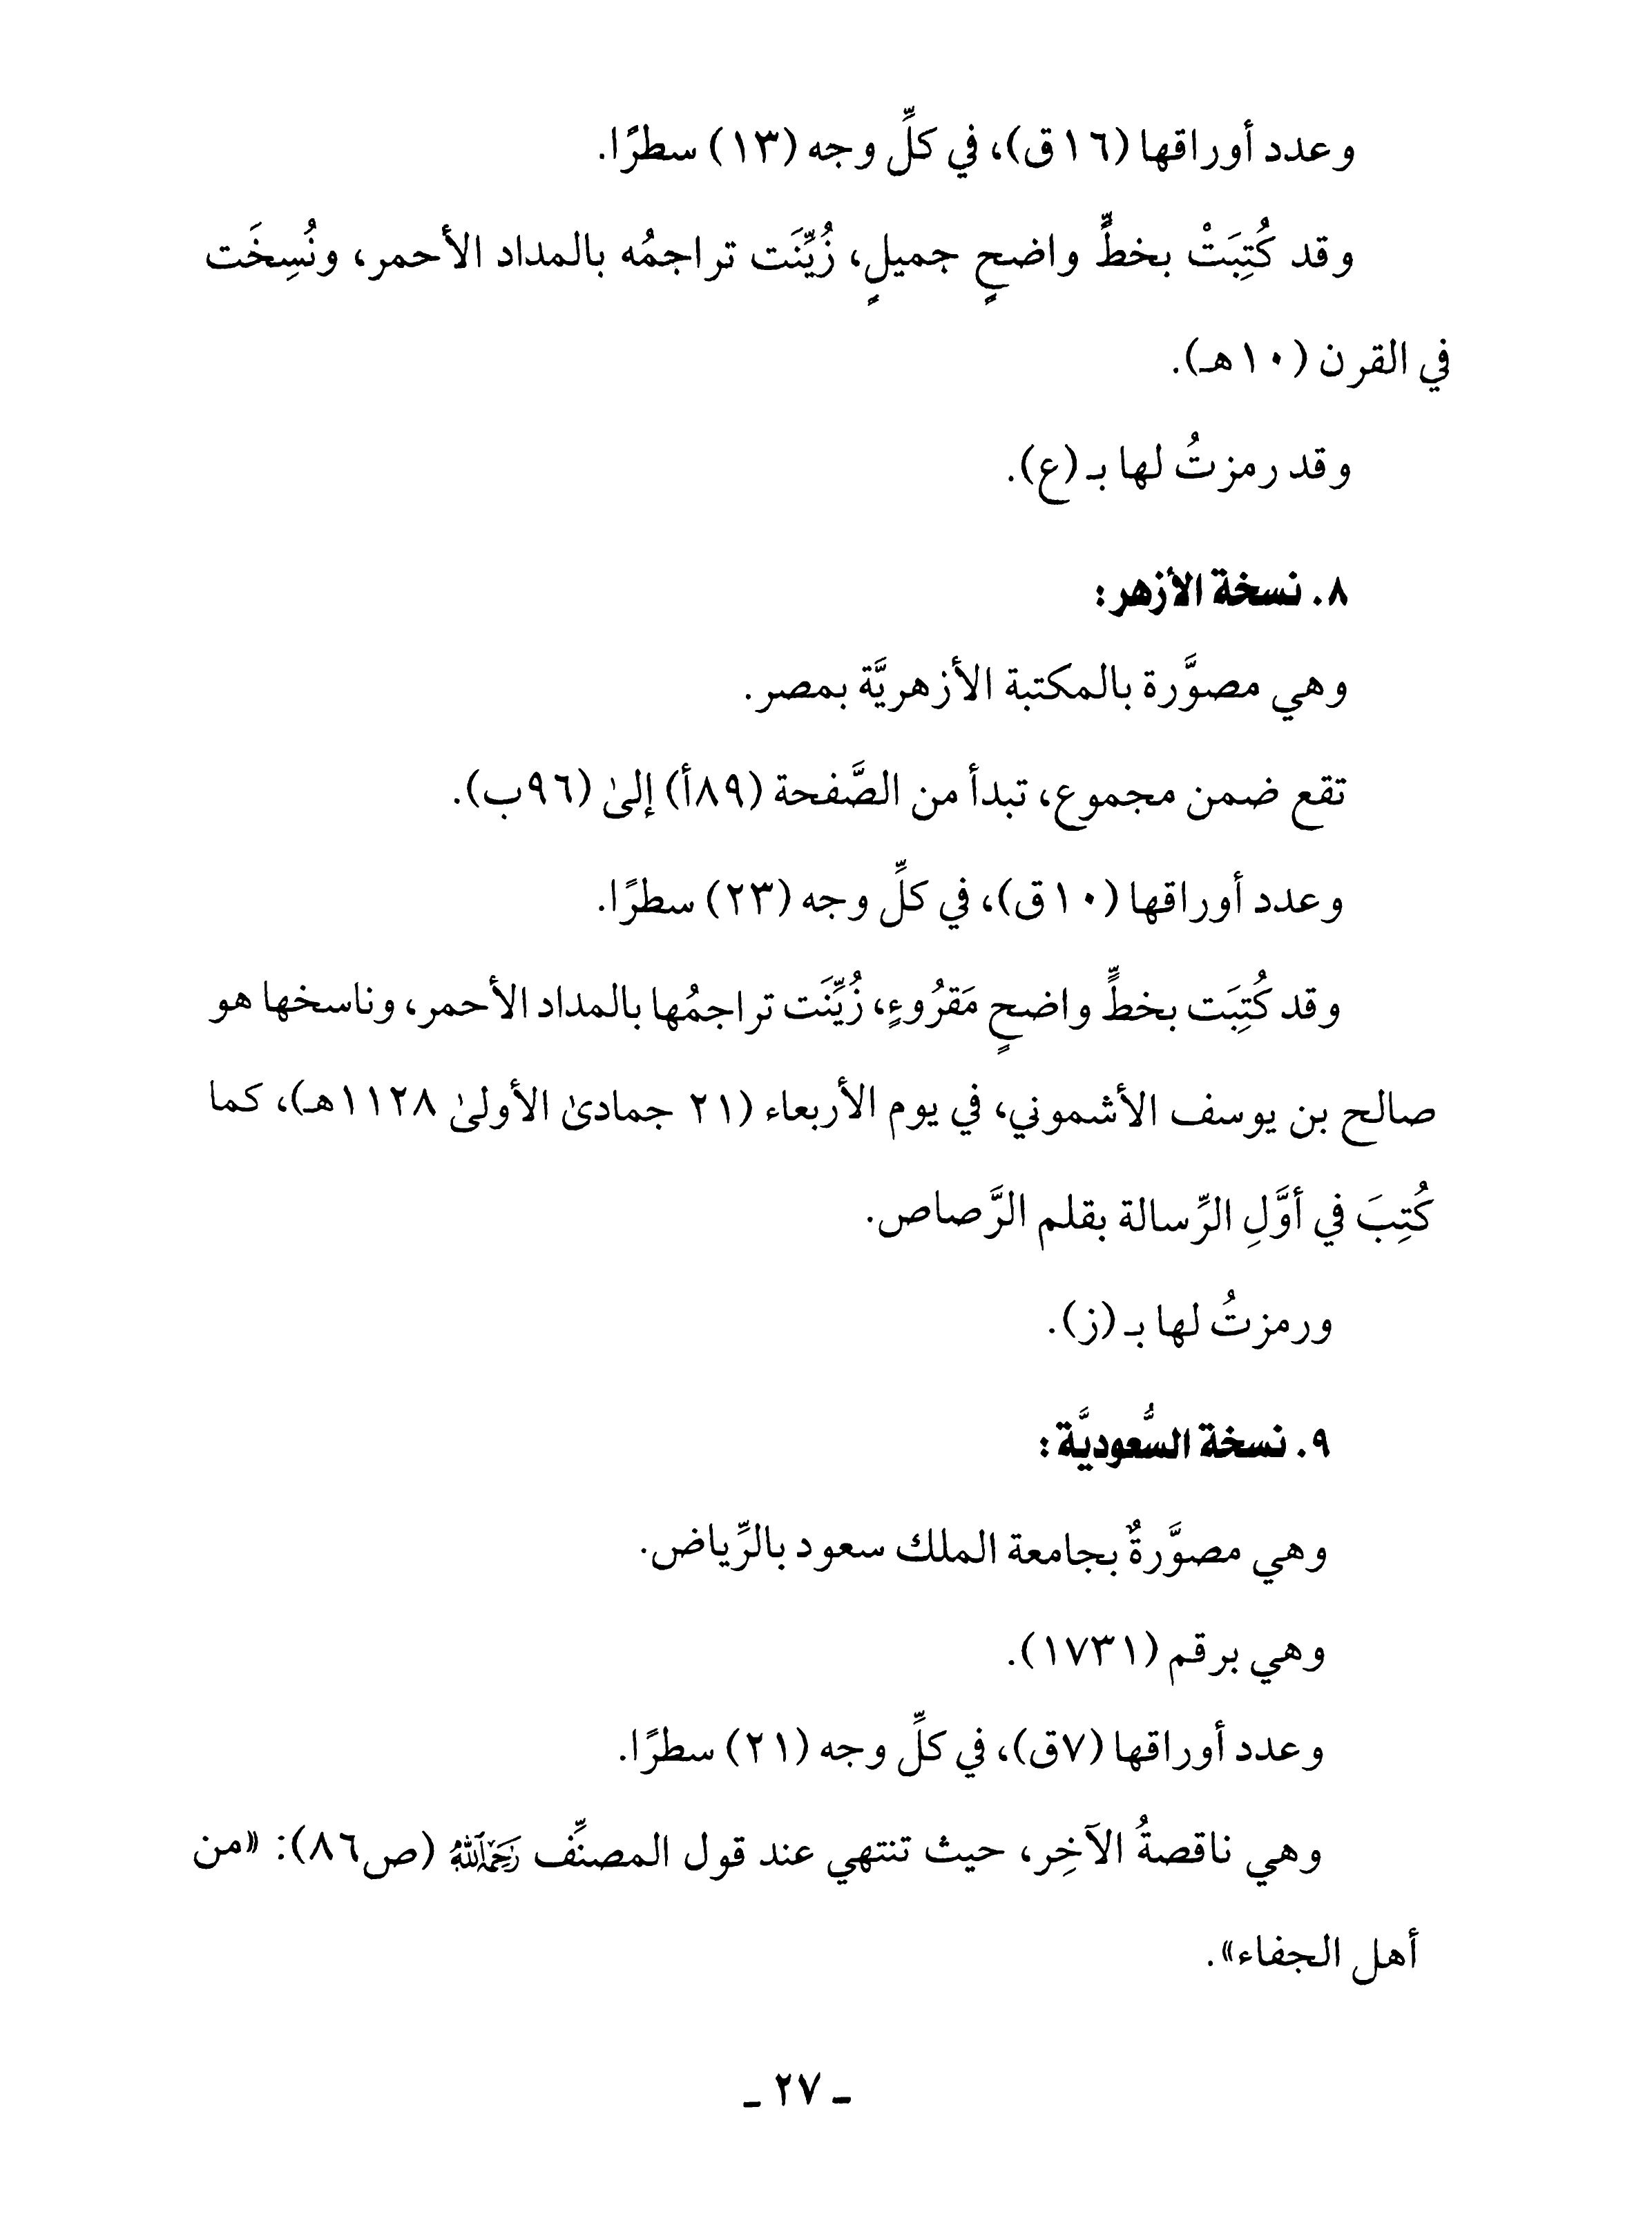 وعدد أوراقها (١٦ق)، في كلِّ وجه (١٣) سطرًا.
وقد كُتِبَتْ بخطٍّ واضحٍ جميلٍ، زُيِّنَت تراجمُه بالمداد الأحمر، ونُسِخَت
في القرن (١٠هـ).
وقد رمزتُ لها بـ (ع).
٨. نسخة الأزهر:
وهي مصوَّرة بالمكتبة الأزهريَّة بمصر.
تقع ضمن مجموع، تبدأ من الصَّفحة (٨٩أ) إلىٰ (٩٦ب).
وعدد أوراقها (١٠ق)، في كلِّ وجه (٢٣) سطرًا.
وقد كُتِبَت بخطٍّ واضحٍ مَقرُوءٍ، زُيِّنَت تراجمُها بالمداد الأحمر، وناسخها هو
صالح بن يوسف الأشموني، في يوم الأربعاء (٢١ جمادىٰ الأولىٰ ١١٢٨هـ)، كما
كُتِبَ في أوَّلِ الرِّسالة بقلم الرَّصاص.
ورمزتُ لها بـ (ز).
٩. نسخة السُّعوديَّة:
وهي مصوَّرةٌ بجامعة الملك سعود بالرِّياض.
وهي برقم (١٧٣١).
وعدد أوراقها (٧ق)، في كلِّ وجه (٢١) سطرًا.
وهي ناقصةُ الآخِر، حيث تنتهي عند قول المصنِّف رَحِمَهُ اللَّهُ (ص٨٦): «من
أهل الجفاء».
ـ ٢٧ ـ